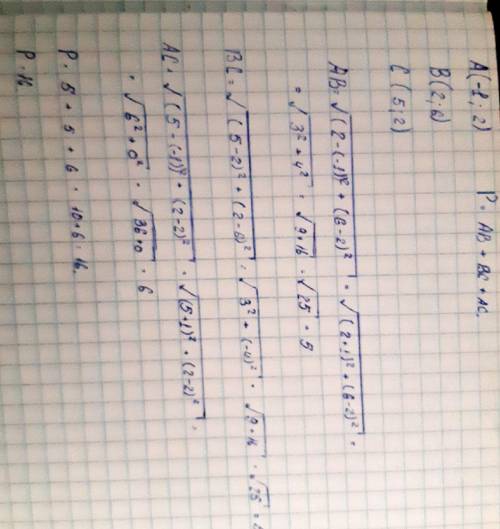 A(-1; 2) P = AB + BC + AC.
B(2; 6)
C (5; 2)
AB = √((2-(-1))² + (6-2)²) = √((2+1)² + (6-2)²) =
= √(3² + 4²) = √(9+16) = √25 = 5
BC = √((5-2)² + (2-6)²) = √(3² + (-4)²) = √(9+16) = √25 =
AC = √((5-(-1))² + (2-2)²) = √((5+1)² + (2-2)²) =
= √(6² + 0²) = √(36+0) = 6
P = 5 + 5 + 6 = 10+6 = 16.
P = 16.